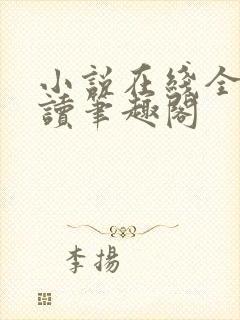 小說在綫全
讀筆趣閣
李揚